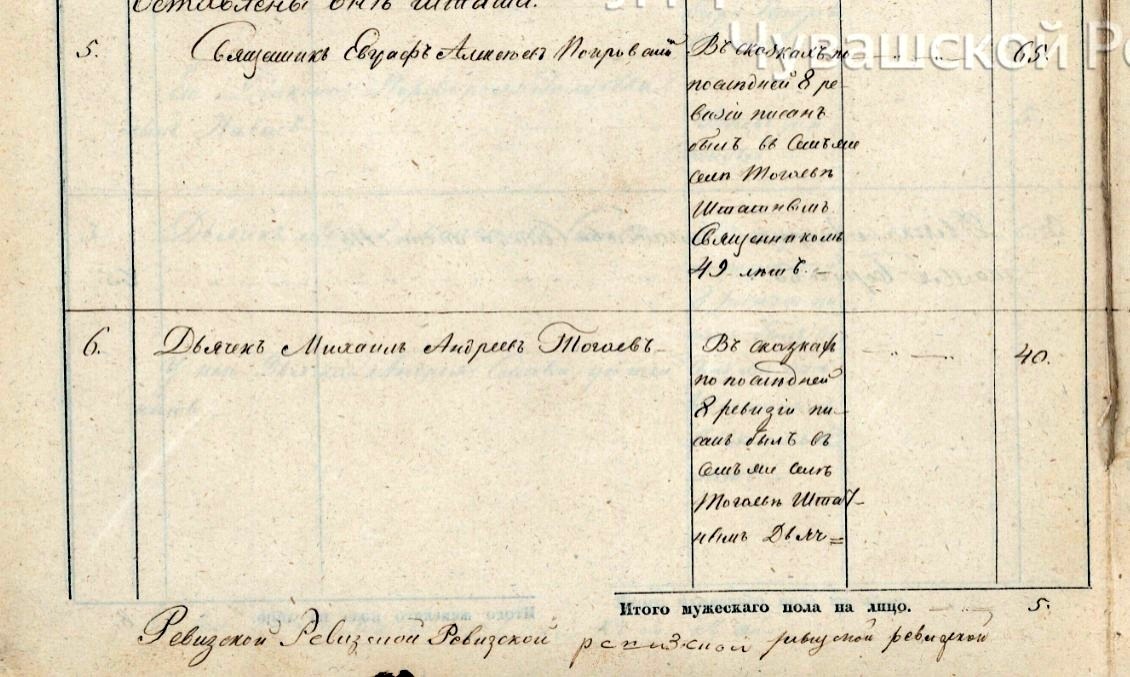 оставлены быть
Чувашской Ре
5. Священникъ Евграфъ Алексѣевъ Покровскій Въ сказкахъ по 65.
последней 8 ре-
визіи писанъ
былъ въ
села Тогаевѣ
Штатнымъ
Священникомъ
49 лѣтъ. -
6. Дьячекъ Михаилъ Андреевъ Тогаевъ Въ сказкахъ 40.
по последней
8 ревизіи пи-
санъ былъ въ
селѣ
Тогаевѣ Штат-
нымъ Дьяч=
Итого мужескаго пола на лицо. 5.
Ревизской Ревизской Ревизской ревизской ревизской ревизской